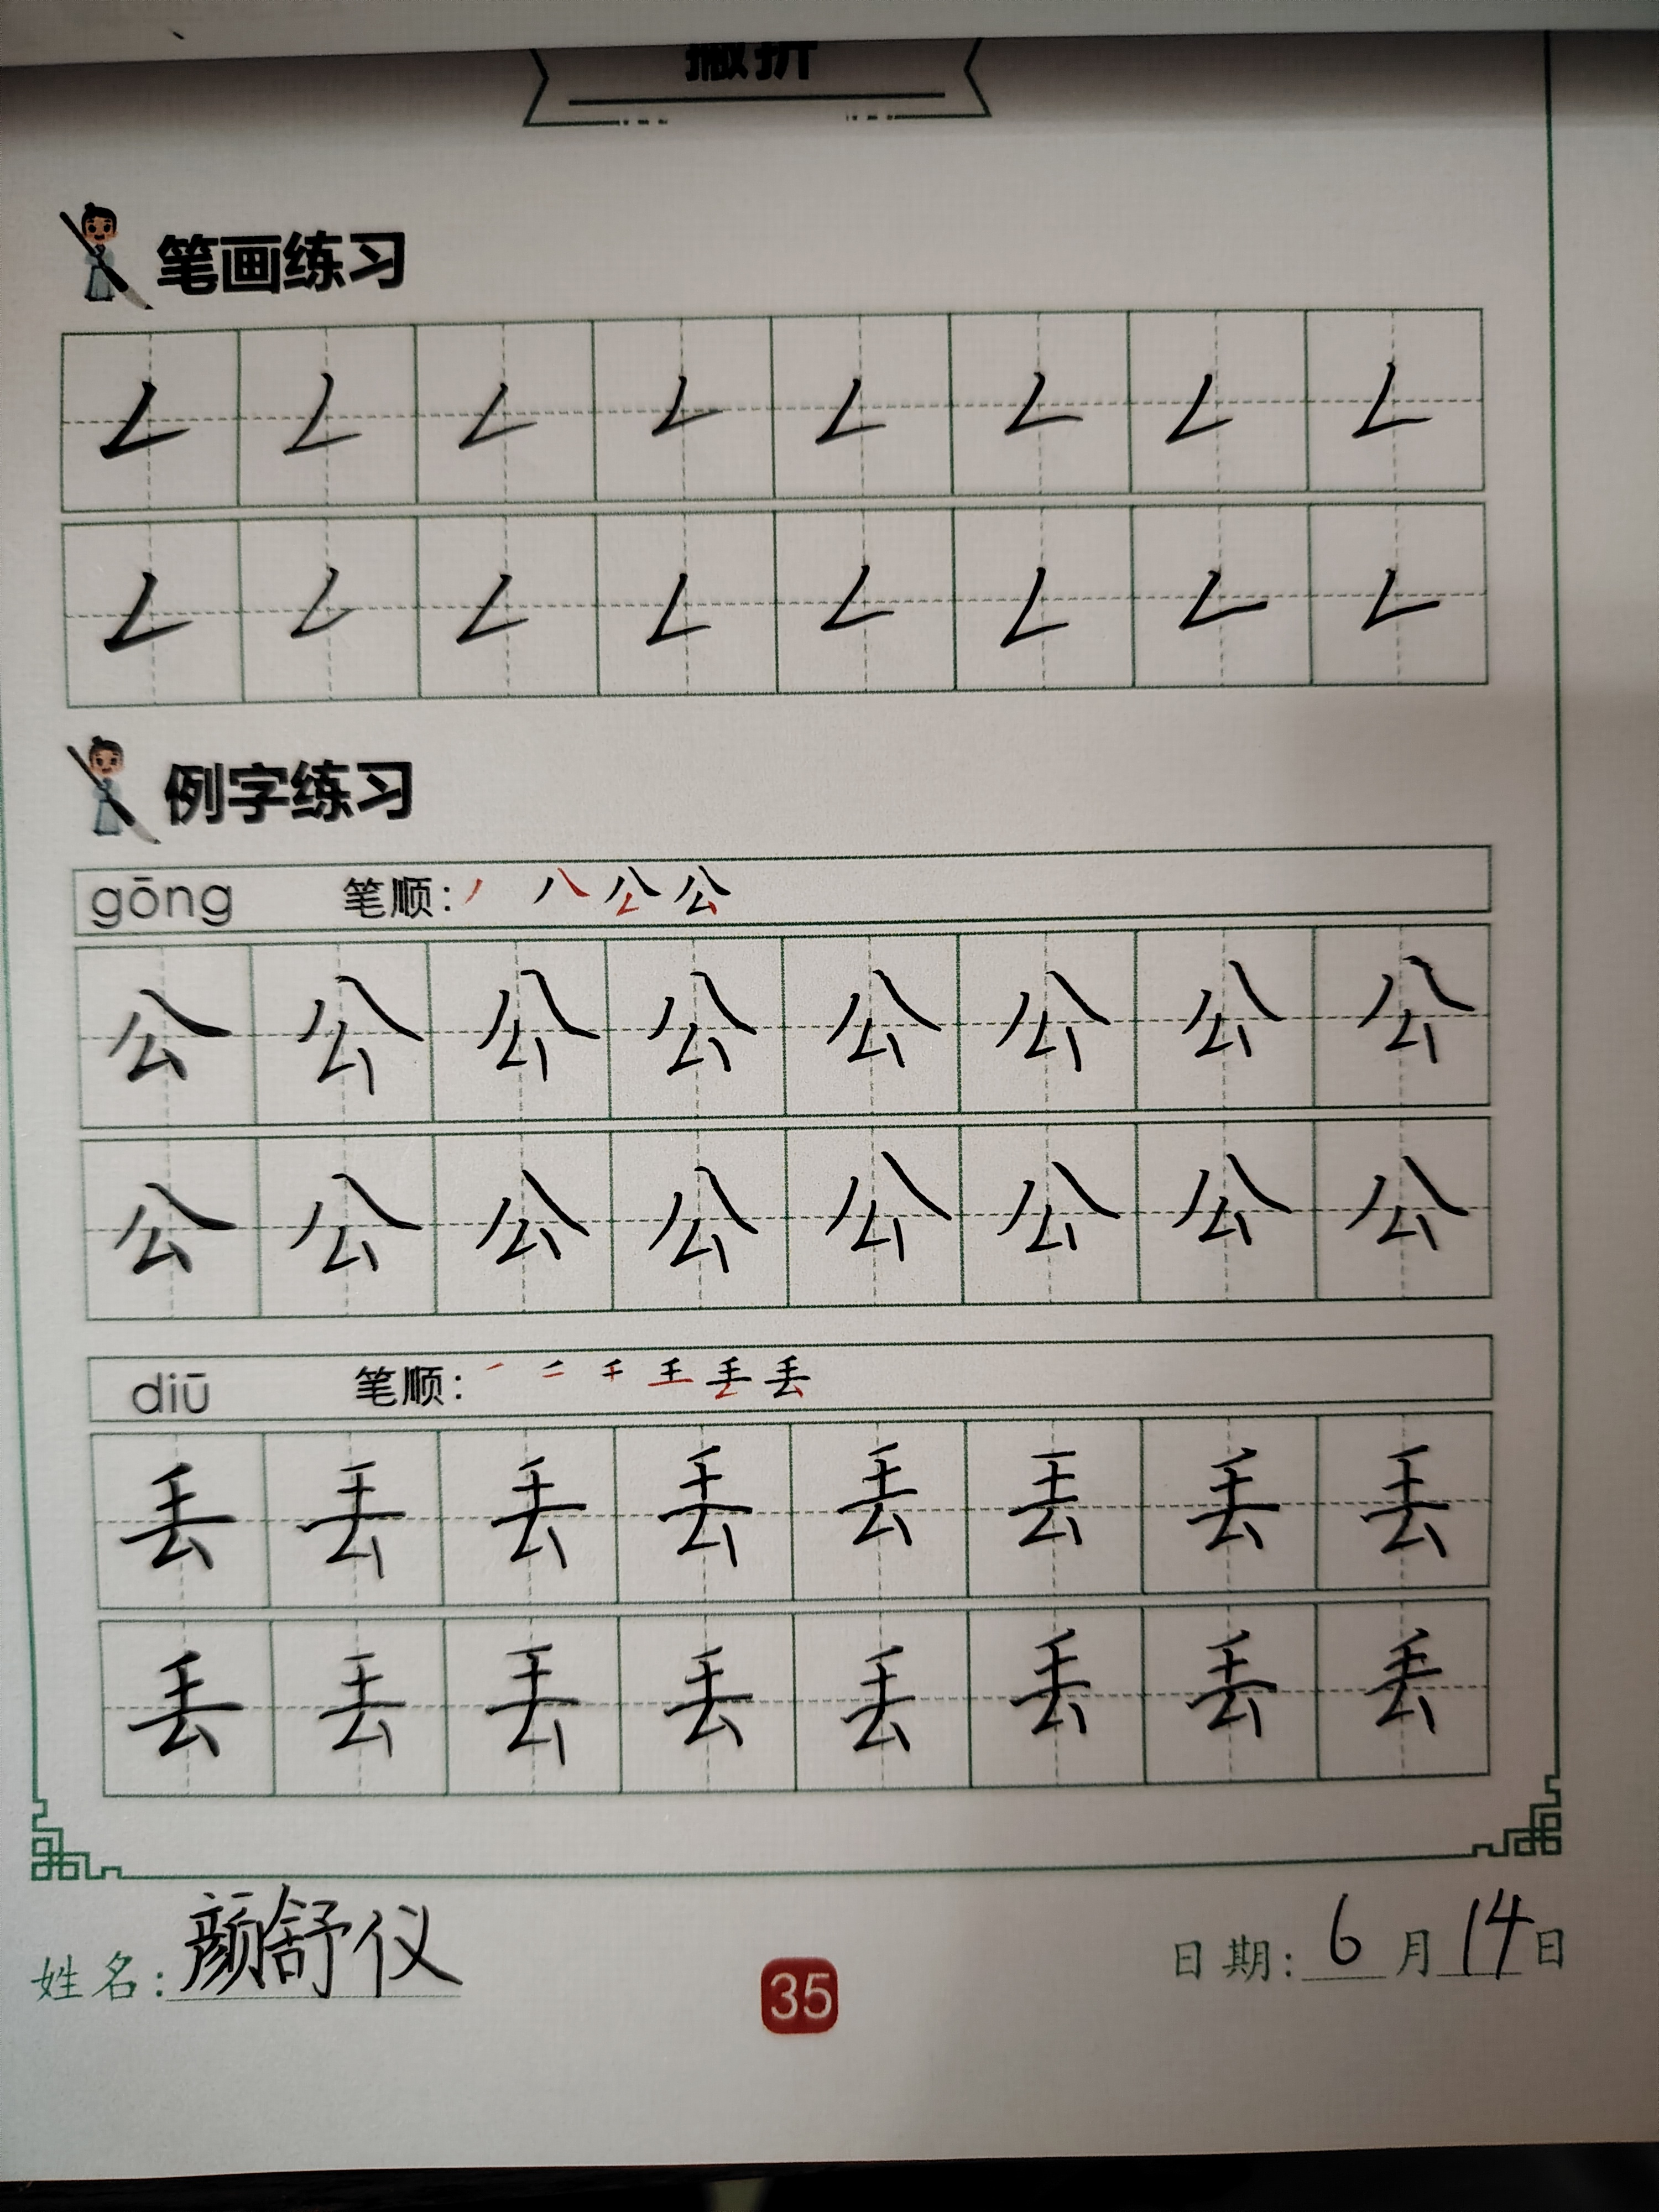 撇折
笔画练习
𠃋 𠃋 𠃋 𠃋 𠃋 𠃋 𠃋 𠃋
𠃋 𠃋 𠃋 𠃋 𠃋 𠃋 𠃋 𠃋
例字练习
gōng 笔顺: 丿 八 公 公
公 公 公 公 公 公 公 公
公 公 公 公 公 公 公 公
diū 笔顺: 丢 丢
丢 丢 丢 丢 丢 丢 丢 丢
丢 丢 丢 丢 丢 丢 丢 丢
姓名: 颜舒仪 35 日期: 6月14日